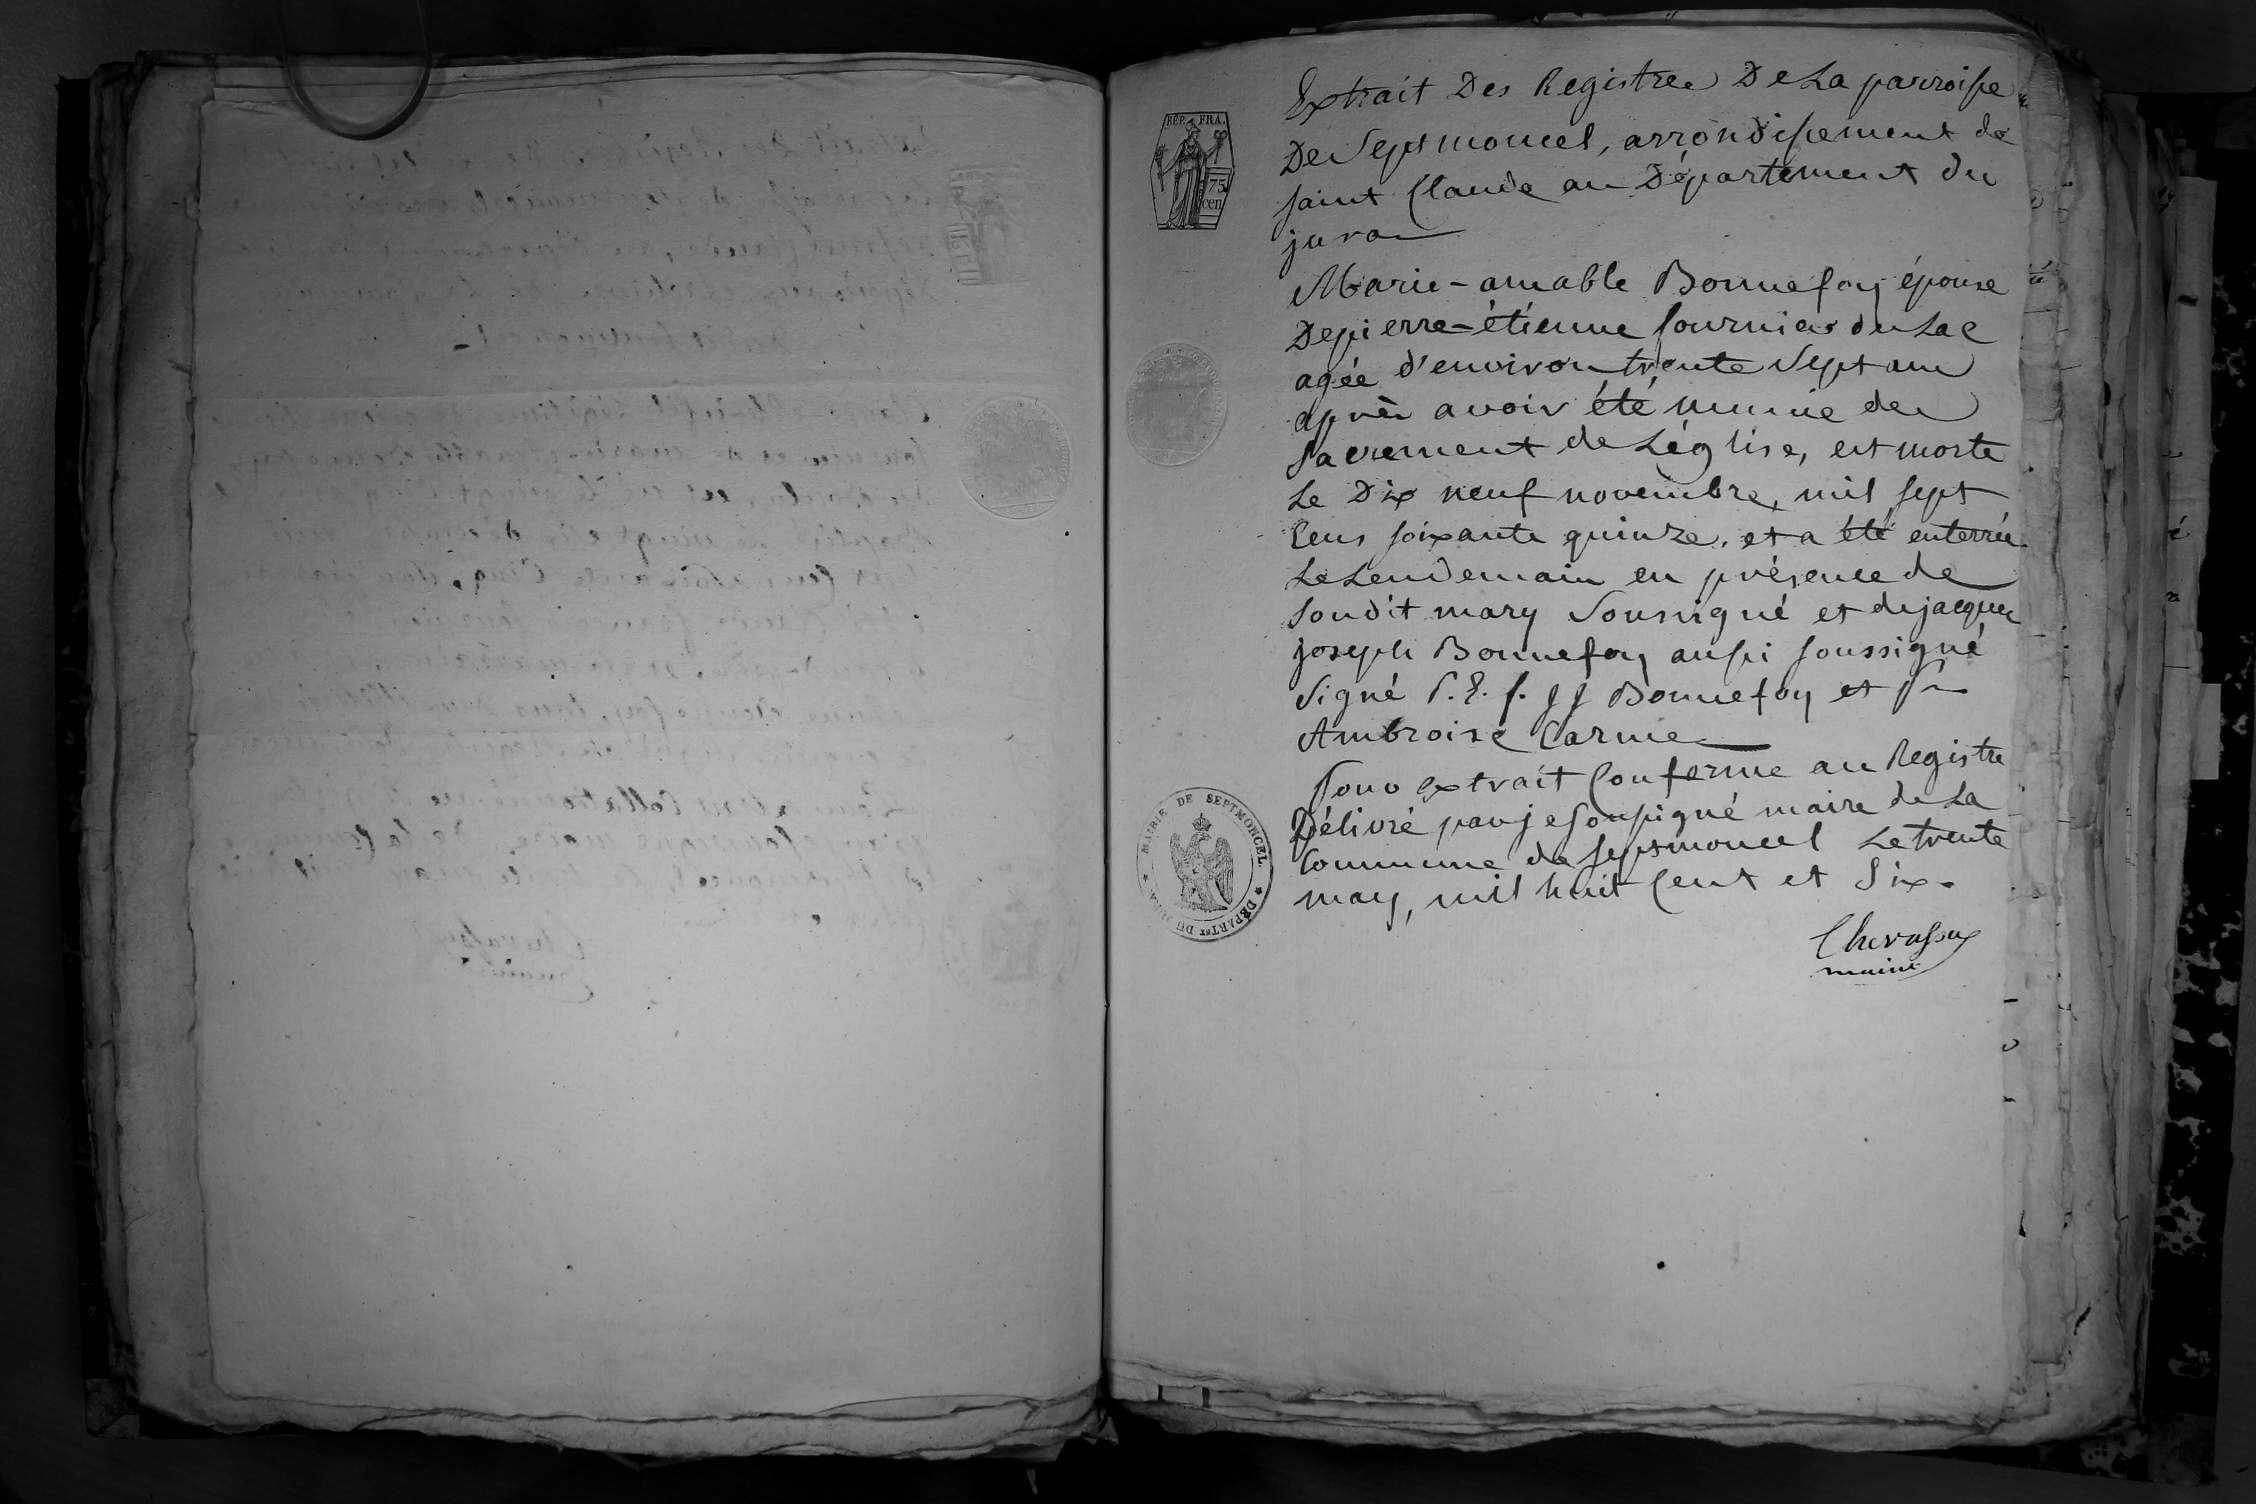 Extrait Des Registres De La parroisse
De Septmoncel, arrondissement de
saint Claude au Département du
jura
REP. FRA.
75
cen
Marie-amable Bonnefoy épouse
De pierre-étienne fournier du Lac
agée d'environ trente Sept ans
après avoir été munie des
Sacrement de Léglise, est morte
Le Dix neuf novembre, mil sept
Cens soixante quinze, et a été enterrée
Le Lendemain en présence de
Sondit mary Soussigné et de jacques
joseph Bonnefoy aussi soussigné
Signé P. E. f. J J Bonnefoy et
Ambroise Carme
Pour extrait Conforme au Registre
Délivré par je soussigné maire de La
Commune de septmoncel Le trente
may, mil huit Cent et Six.
MAIRIE DE SEPTMONCEL
DÉPARTer DU JURA
Chevassus
maire